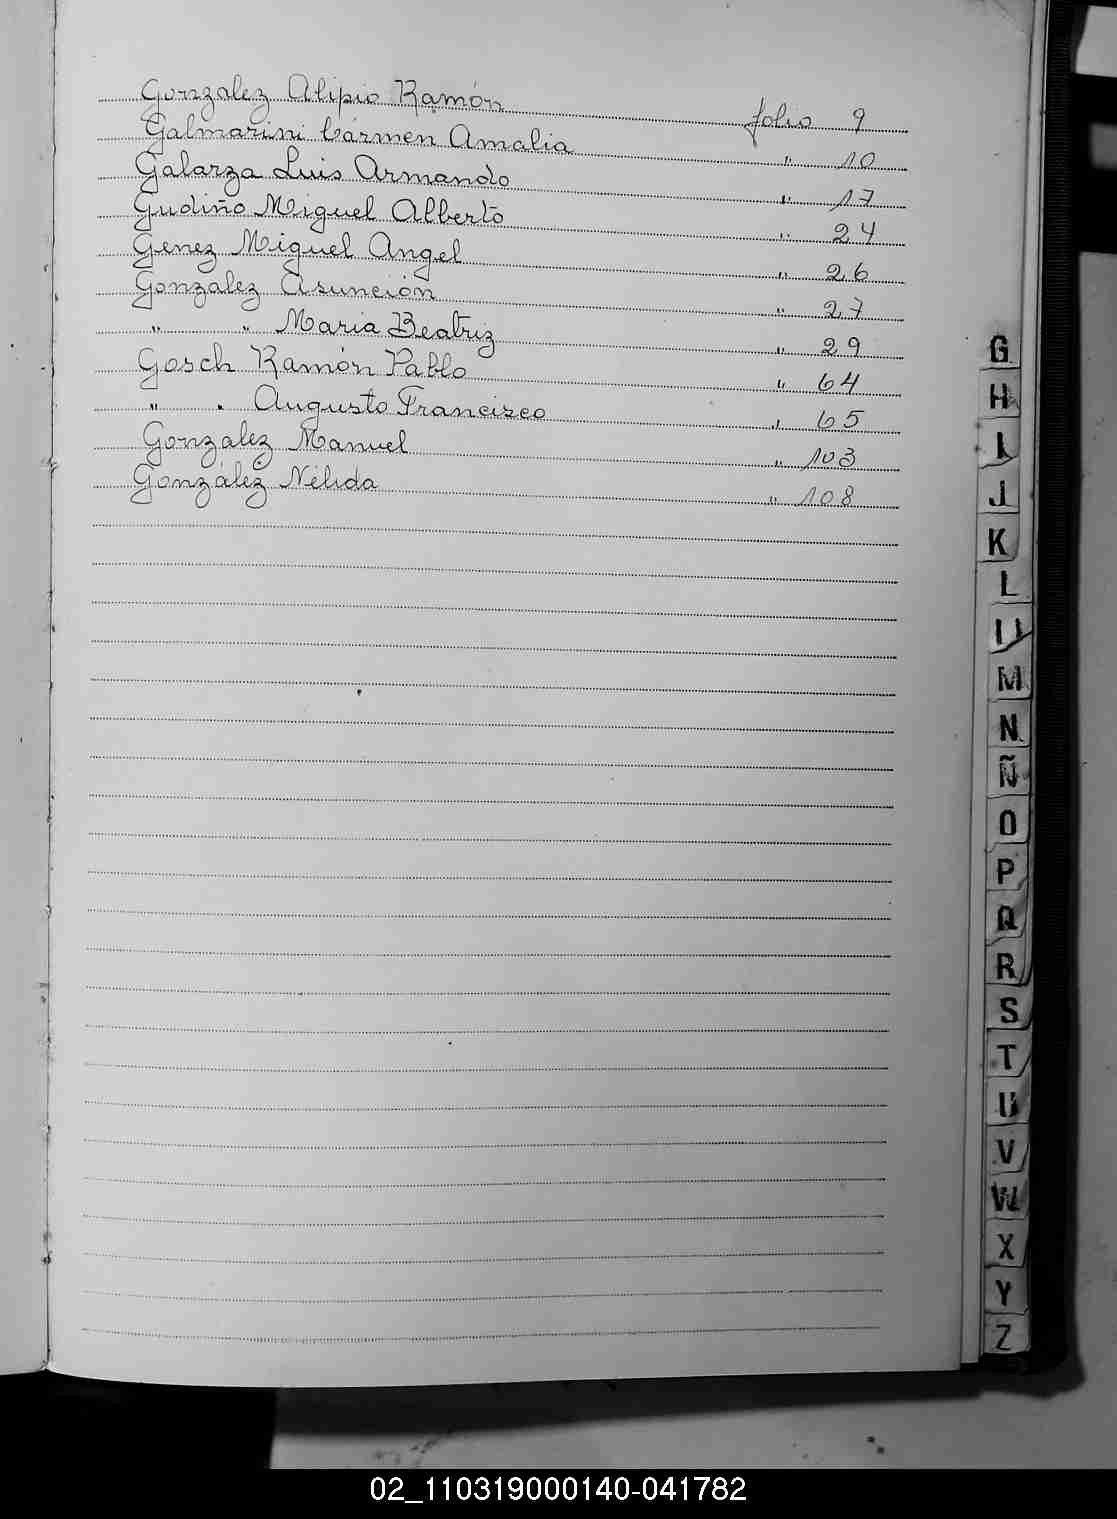 Gonzalez Alipio Ramón folio 9
Galmarini Cármen Amalia " 10
Galarza Luis Armando " 17
Gudiño Miguel Alberto " 24
Genez Miguel Angel " 26
Gonzalez Asunción " 27
" " Maria Beatriz " 29
Gosch Ramón Pablo " 64
" " Augusto Francisco " 65
Gonzalez Manuel " 103
González Nélida " 108
G
H
I
J
K
L
LL
M
N
Ñ
O
P
Q
R
S
T
U
V
W
X
Y
Z
02_110319000140-041782